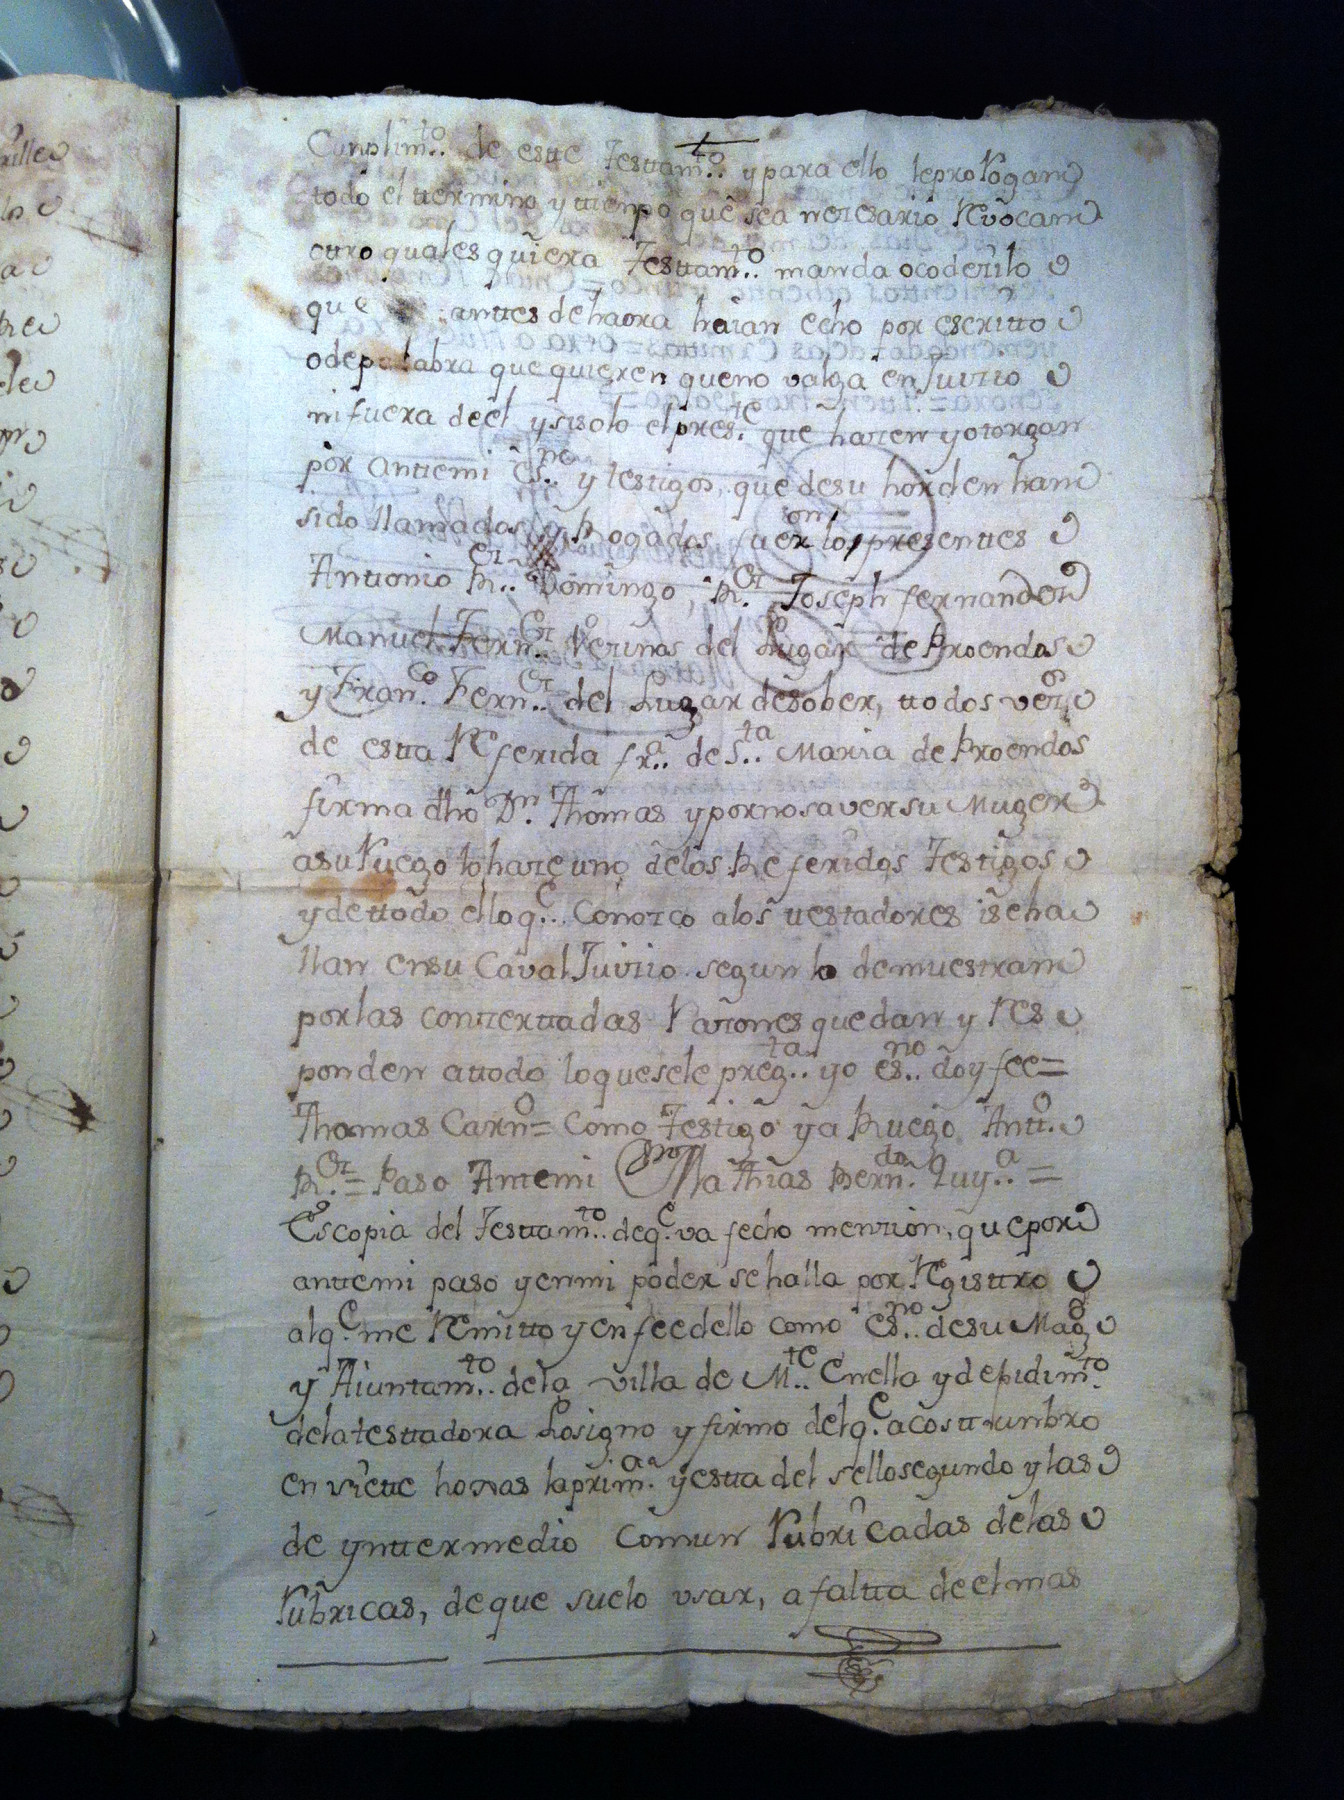 Cunplim.to de este Testam.to y para ello le prorrogan
todo el termino y tienpo que sea nezesario Revocan
otro quales quiera Testtam.to manda o coderilo
que antes de haora haian echo por escritto
o de palabra que quieren que no valga en Juizio
ni fuera de el y si solo el pres.te que hazen y otorgan
por antemi Es.no y testigos, que de su horden han
sido llamados y Rogados, fueron lo, presenttes
Anttonio R.ez Domingo, R.ez Joseph fernandez
Manuel Fern.ez Vezinos del Lugar de Proendos
y Fran.co Fern.ez del Lugar de sober, ttodos vez.os
de estta Referida fr.a de S.ta Maria de Proendos
firma dho D.n Thomas y por no saver su Muger
a su Ruego lo haze uno de los Referidos Testigos
y de ttodo ello q.e Conozco a los testadores i se ha
llan en su Caval Juizio segun lo demuestran
por las conzertadas Razones que dan y Res
ponden a ttodo lo que se le preg.ta yo es.no doy fee=
Thomas Carn.o= Como Testigo y a Ruego Antt.o
R.ez= Paso Antemi Mathias Hern.do Quy.a =
Es copia del Testtam.to de q.e va fecho menzion, que por
anttemi paso y en mi poder se halla por Registtro
al q.e me Remitto y en fee dello como es.no de su Mag.
y Aiuntam.to de la villa de M.te y de pidim.to
de la testtadora Lo signo y firmo del q.e acosttunbro
en siette hojas la prim.a y estta del sello segundo y las
de ynttermedio Comun Rubricadas de las
Rubricas, de que suelo usar, a faltta de el mas